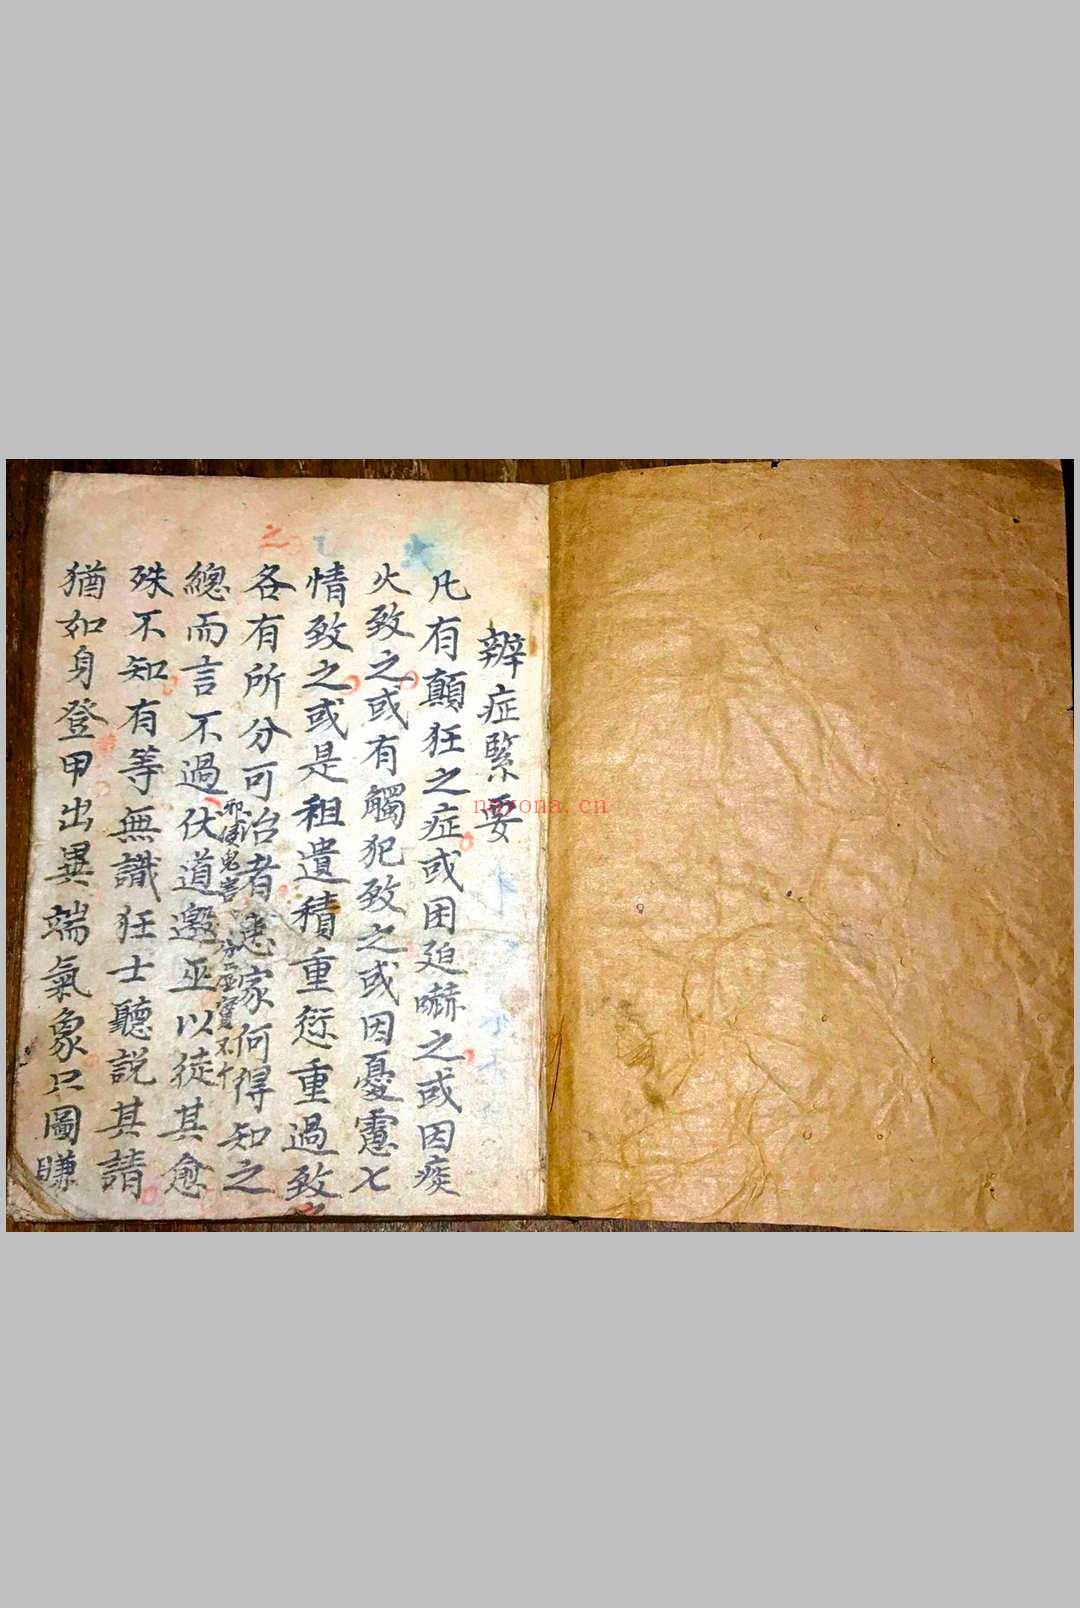 辨症緊要
凡有顛狂之症或因廹嚇之或因痰
火致之或有觸犯致之或因憂慮七
情致之或是祖遺積重愆重過致
各有所分可治者患家何得知之
邪 鬼害 分虛實不个
總而言不過伏道邀巫以徒其愈
殊不知有等無識狂士聽説其請
猶如身登甲出異端氣象只圖賺
之
nayona.cn